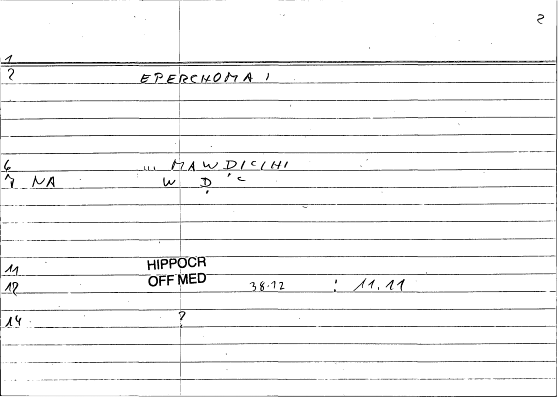 2
1
2 EPERCHOMAI
6 ... MAWDICIHI
7 NA W D C
11 HIPPOCR
12 OFF MED 38.12 : 11.11
14 ?